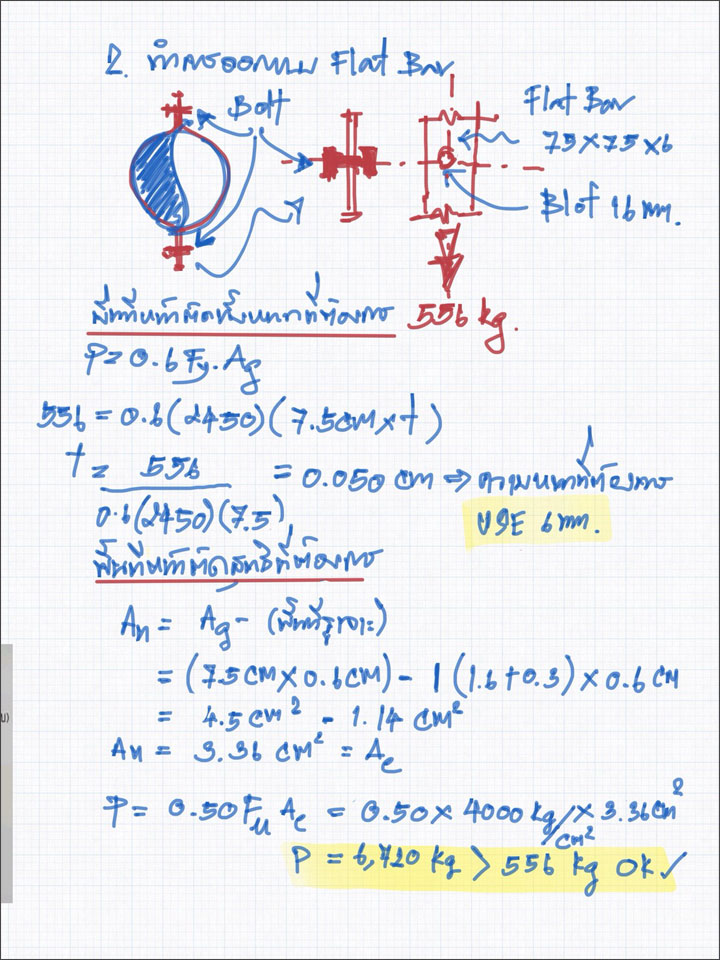 2. ทำการออกแบบ Flat Bar
Bolt
Flat Bar
75×75×6
Blot 16 mm.
556 kg.
พื้นที่หน้าตัดทั้งหมดที่ต้องการ
P = 0.6 Fy. Ag
556 = 0.6(2450)(7.5cm×t)
t = 556 / 0.6(2450)(7.5) = 0.050 cm ⇒ ความหนาที่ต้องการ
USE 6 mm.
พื้นที่หน้าตัดสุทธิที่ต้องการ
An = Ag - (พื้นที่รูเจาะ)
= (7.5 cm × 0.6 cm) - 1 (1.6+0.3) × 0.6 cm
= 4.5 cm² - 1.14 cm²
An = 3.36 cm² = Ae
P = 0.50 Fu Ae = 0.50 × 4000 kg/cm² × 3.36 cm²
P = 6,720 kg > 556 kg OK ✓